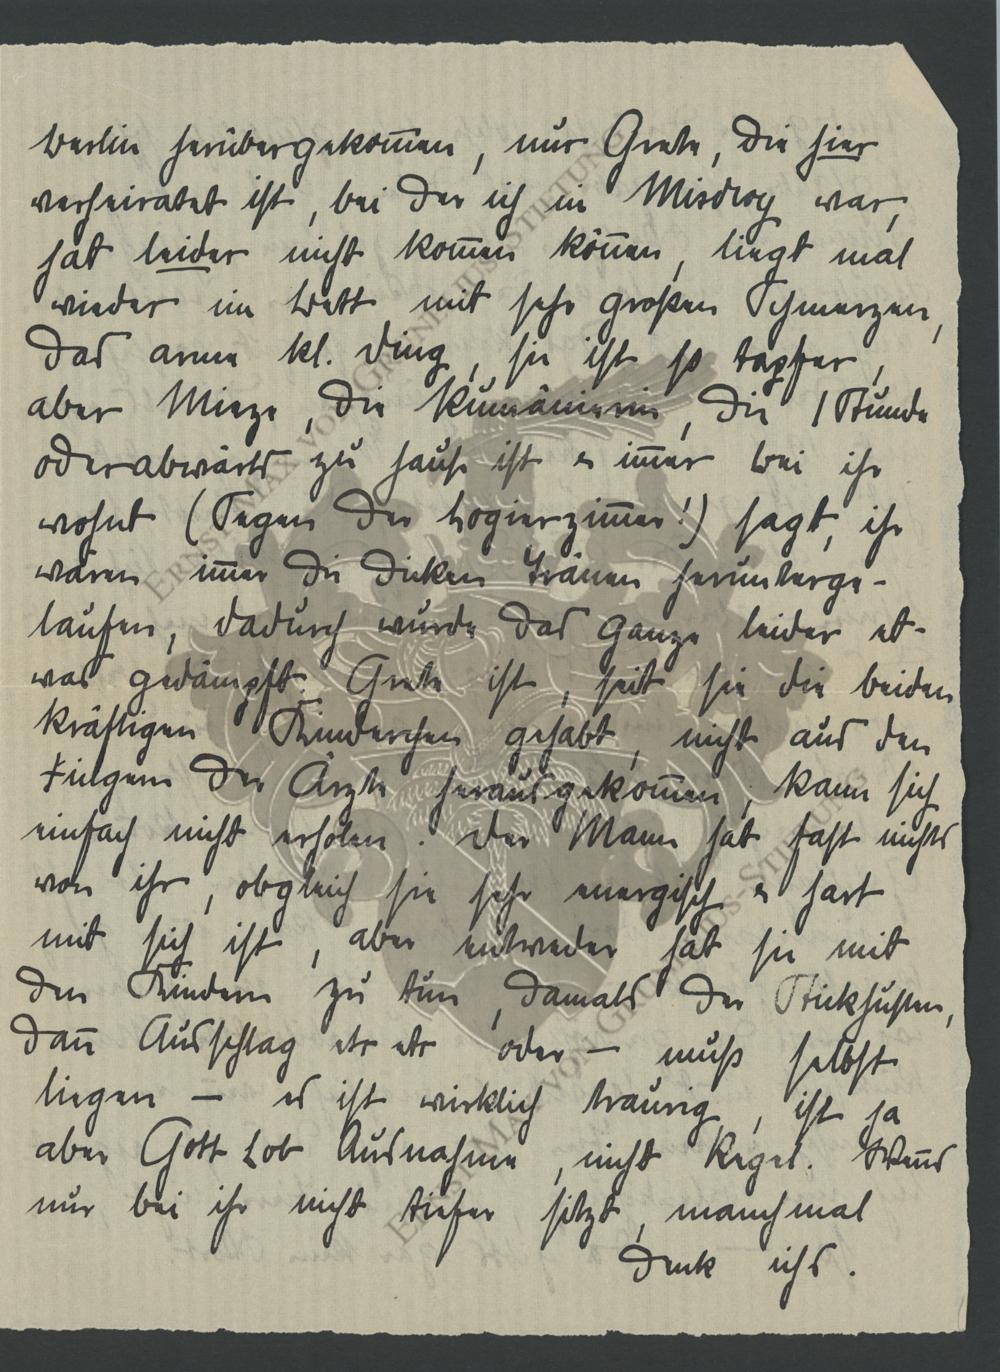 Berlin herübergekom̅en, nur Grete, die hier
verheiratet ist, bei der ich in Misdroy war,
hat leider nicht kom̅en kön̅en, liegt mal
wieder im Bett mit sehr großen Schmerzen,
das arme kl. Ding, sie ist so tapfer,
aber Mieze, die Rumänierin, die 1 Stunde
oderabwärts zu Hause ist u im̅er bei ihr
wohnt (Segen der Logierzim̅er!) sagt, ihr
wären im̅er die dicken Tränen herunterge-
laufen, dadurch wurde das Ganze leider et-
was gedämpft. Grete ist, seit sie die beiden
kräftigen Kinderchen gehabt, nicht aus den
Fingern der Ärzte herausgekom̅en, kann sich
einfach nicht erholen. Der Mann hat fast nichts
von ihr, obgleich sie sehr energisch u hart
mit sich ist, aber entweder hat sie mit
den Kindern zu tun, damals der Stickhusten,
dan̅ Ausschlag etc etc oder – muß selbst
liegen – es ist wirklich traurig, ist ja
aber Gott Lob Ausnahme, nicht Regel. Wen̅s
nur bei ihr nicht tiefer sitzt, manchmal
denk ichs.
ERNST-MAX-VON-GRUNELIUS-STIFTUNG
ERNST-MAX-VON-GRUNELIUS-STIFTUNG